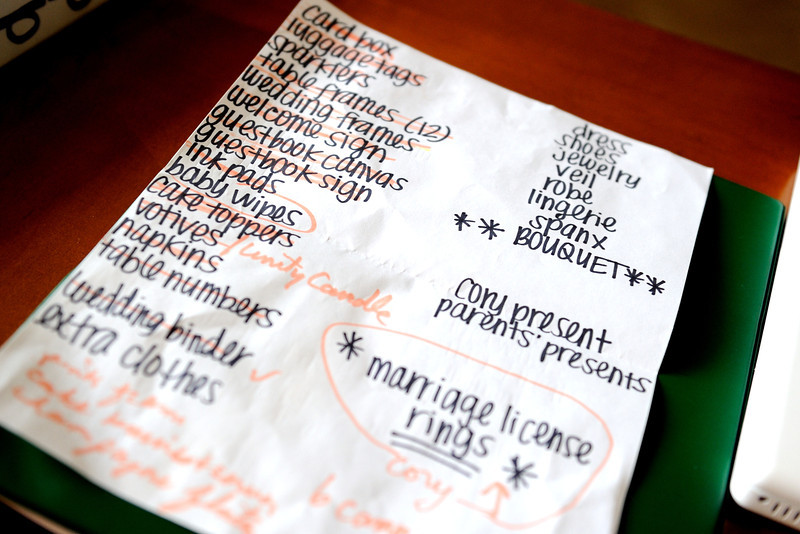 card box
luggage tags
sparklers
table frames (12)
wedding frames
welcome sign
guestbook canvas
guestbook sign
ink pads
baby wipes
cake toppers
votives / unity candle
napkins
table numbers
wedding binder ✓
extra clothes
dress
shoes
jewelry
veil
robe
lingerie
spanx
** BOUQUET **
Cory present
parents' presents
* marriage license
rings *
Cory